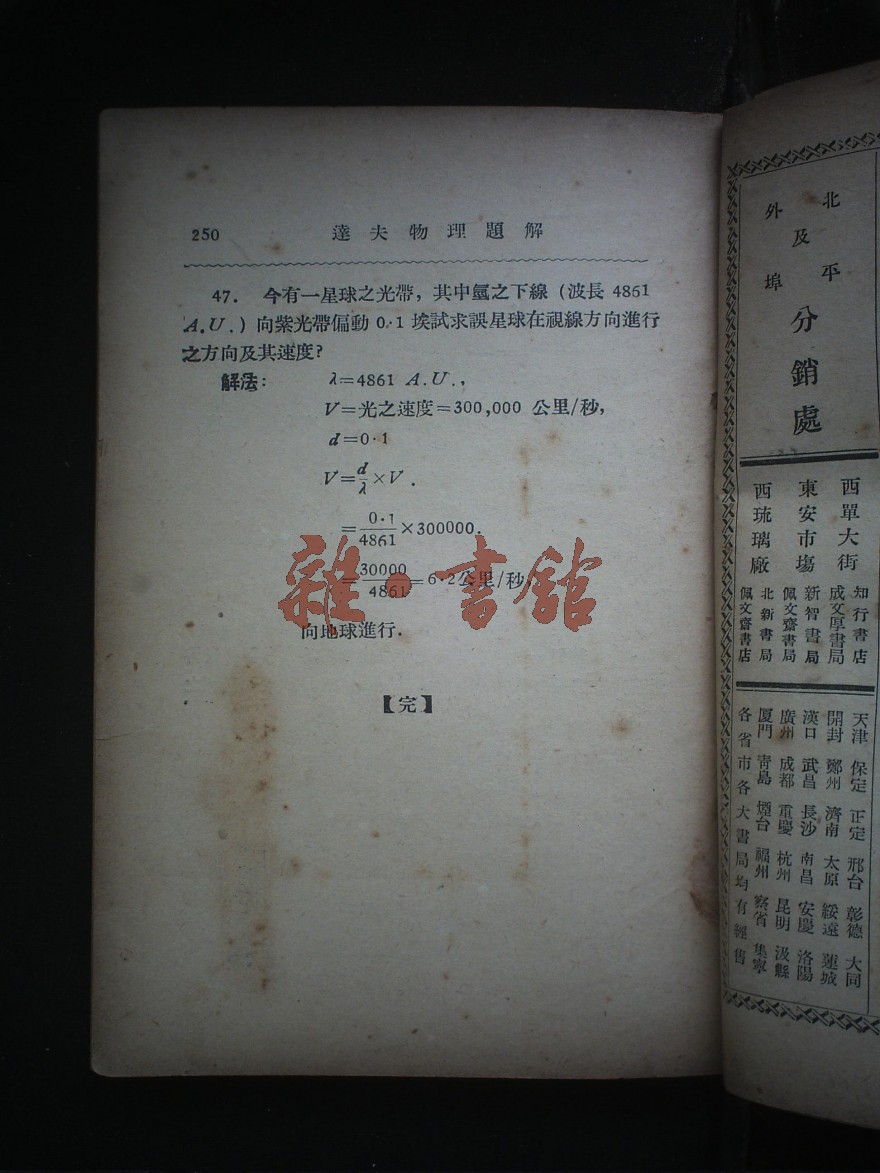 250 達夫物理題解
47. 今有一星球之光帶，其中氫之下線（波長 4861
A.U.）向紫光帶偏動 0·1 埃試求誤星球在視線方向進行
之方向及其速度?
解法： λ=4861 A.U.,
V=光之速度=300,000 公里/秒,
d=0·1
V=d/λ×V .
=0·1/4861×300000.
=30000/4861=6·2公里/秒,
向地球進行.
【完】
雜·書館
北平
及
外埠
分銷處
西單大街
知行書店
成文厚書局
東安市場
新智書局
佩文齋書局
西琉璃廠
北新書局
佩文齋書店
天津 保定 正定 邢台 彰德 大同
開封 鄭州 濟南 太原 綏遠 蓮城
漢口 武昌 長沙 南昌 安慶 洛陽
廣州 成都 重慶 杭州 昆明 汲縣
厦門 青島 煙台 福州 察省 集寧
各省市各大書局均有經售